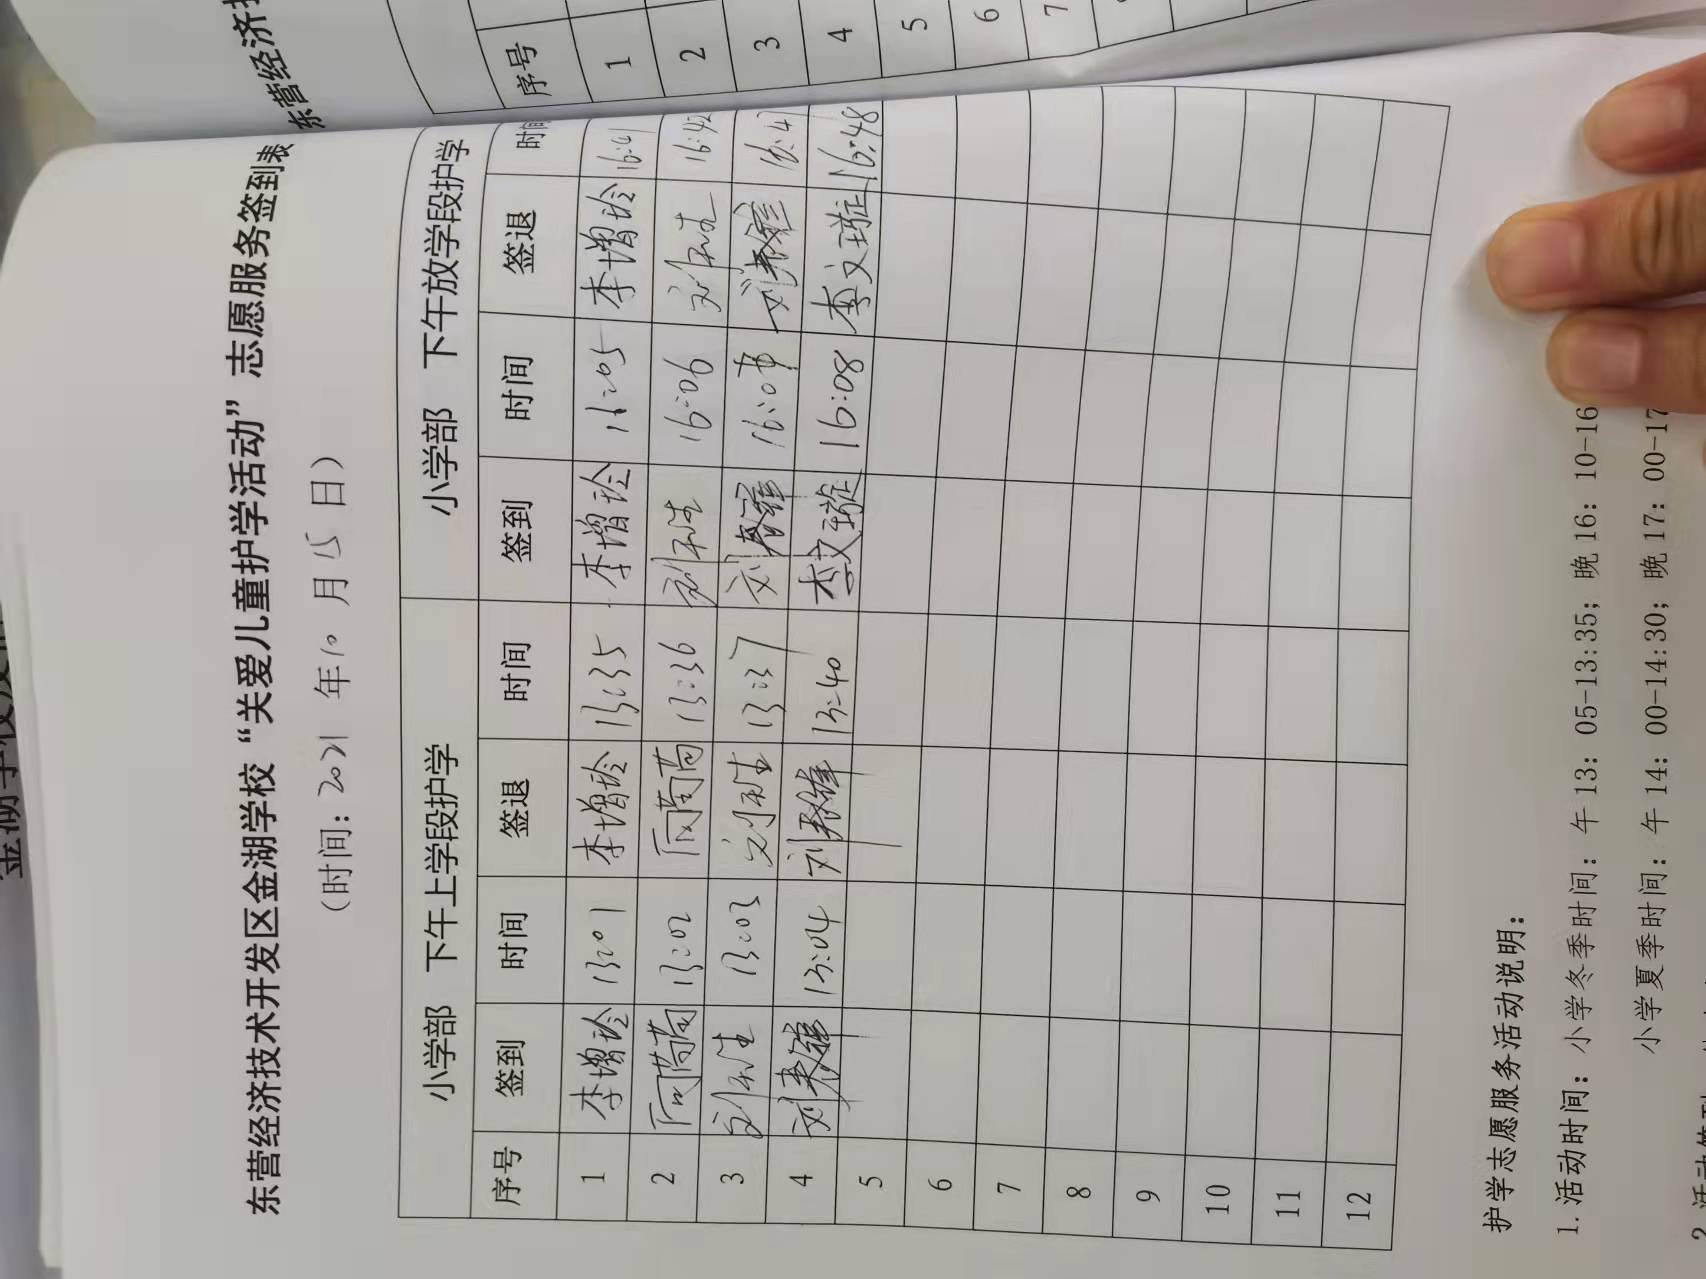 东营经济技术开发区金湖学校“关爱儿童护学活动”志愿服务签到表
(时间：2021年10月15日)
小学部 下午上学段护学 小学部 下午放学段护学
序号 签到 时间 签退 时间 签到 时间 签退 时间
1 李增玲 13:01 李增玲 13:35 李增玲 16:05 李增玲 16:41
2 13:02 13:36 16:06 16:42
3 13:03 13:37 16:4
4 13:04 13:40 李文璇 16:08 李文璇 16:48
5
6
7
8
9
10
11
12
护学志愿服务活动说明：
1.活动时间：小学冬季时间：午13：05-13:35；晚16：10-16
小学夏季时间：午14：00-14:30；晚17：00-17
东营经济
序号 1 2 3 4 5 6 7